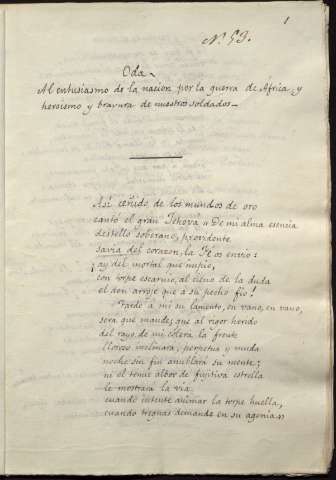 1
N.º 53.
Oda
Al entusiasmo de la nacion por la guerra de Africa y
heroismo y bravura de nuestros soldados
Así ceñido de los mundos de oro
cantó el gran Jehová "De mi alma esencia
destello soberano, providente
savia del corazon, la Fé os envio:
¡ay del mortal que impio,
con torpe escarnio, al cieno de la duda
el don arroje que á su pecho fio!
Tarde á mí su lamento, en vano, en vano,
será que mande; que al rigor herido
del rayo de mi cólera la frente
lloroso inclinará; perpetua y muda
noche sin fin anublará su mente;
ni el tenue albor de fugitiva estrella
le mostrará la via,
cuando intente animar la torpe huella,
cuando treguas demande en su agonia"